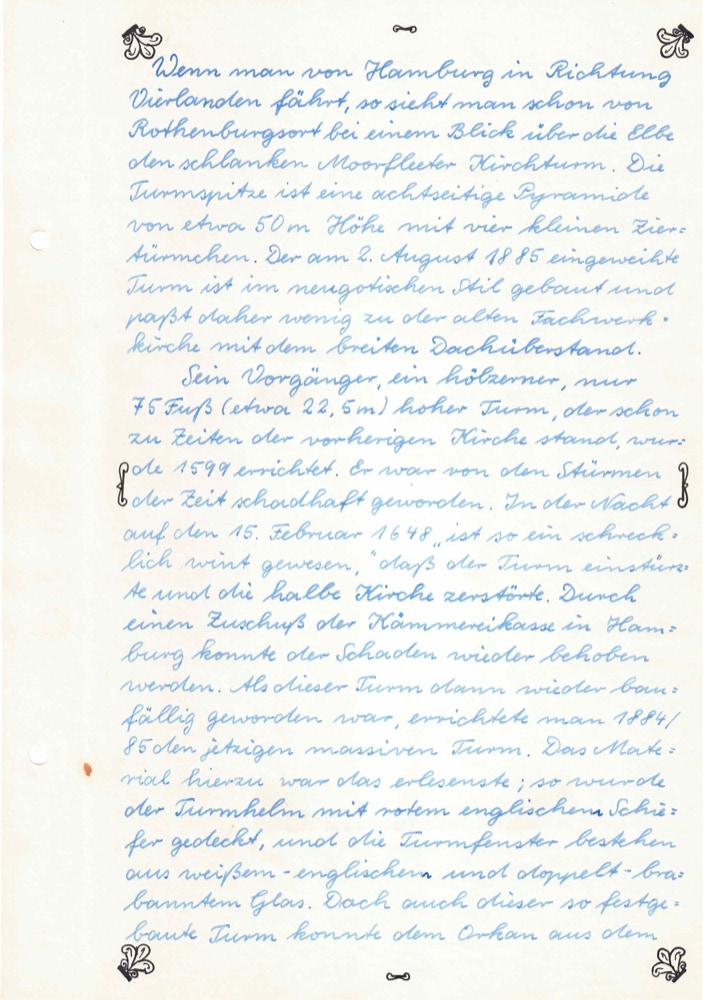 Wenn man von Hamburg in Richtung
Vierlanden fährt, so sieht man schon von
Rothenburgsort bei einem Blick über die Elbe
den schlanken Moorfleeter Kirchturm. Die
Turmspitze ist eine achtseitige Pyramide
von etwa 50 m Höhe mit vier kleinen Zier=
türmchen. Der am 2. August 1885 eingeweihte
Turm ist im neugotischen Stil gebaut und
paßt daher wenig zu der alten Fachwerk=
kirche mit dem breiten Dachüberstand.
Sein Vorgänger, ein hölzerner, nur
75 Fuß (etwa 22,5m) hoher Turm, der schon
zu Zeiten der vorherigen Kirche stand, wur=
de 1599 errichtet. Er war von den Stürmen
der Zeit schadhaft geworden. In der Nacht
auf den 15. Februar 1648 „ist so ein schreck=
lich wint gewesen," daß der Turm einstürz=
te und die halbe Kirche zerstörte. Durch
einen Zuschuß der Kämmereikasse in Ham=
burg konnte der Schaden wieder behoben
werden. Als dieser Turm dann wieder bau=
fällig geworden war, errichtete man 1884/
85 den jetzigen massiven Turm. Das Mate=
rial hierzu war das erlesenste; so wurde
der Turmhelm mit rotem englischen Schie=
fer gedeckt, und die Turmfenster bestehen
aus weißem-englischen und doppelt-bra=
banntem Glas. Doch auch dieser so festge=
baute Turm konnte dem Orkan aus dem